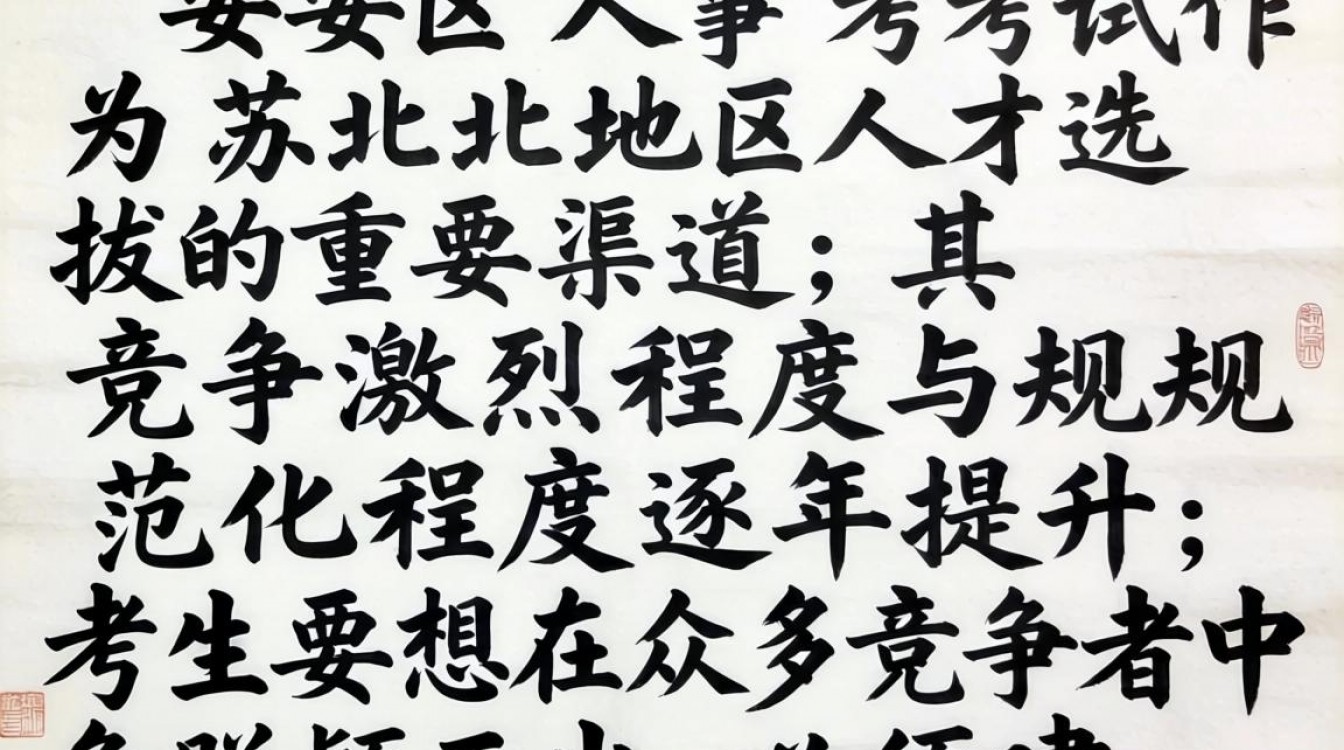 安安区 人事 考考试作
为 苏北北地区人才选
拔的重要渠道；其
竞争激烈程度与规规
范化程度逐年提升；
考生要想在众多竞争者中